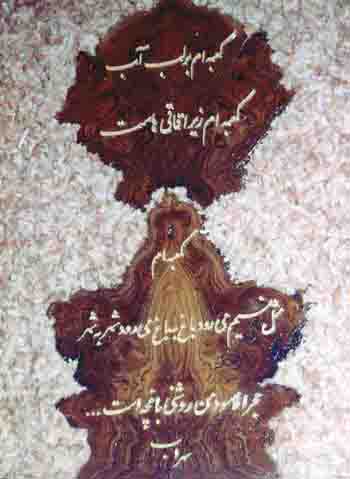 کعبه ام بر لب آب
کعبه ام زیر اقاقی هاست
کعبه ام
مثل نسیم می رود باغ به باغ می رود شهر به شهر
حجرالاسود من روشنی باغچه است ...
سهراب